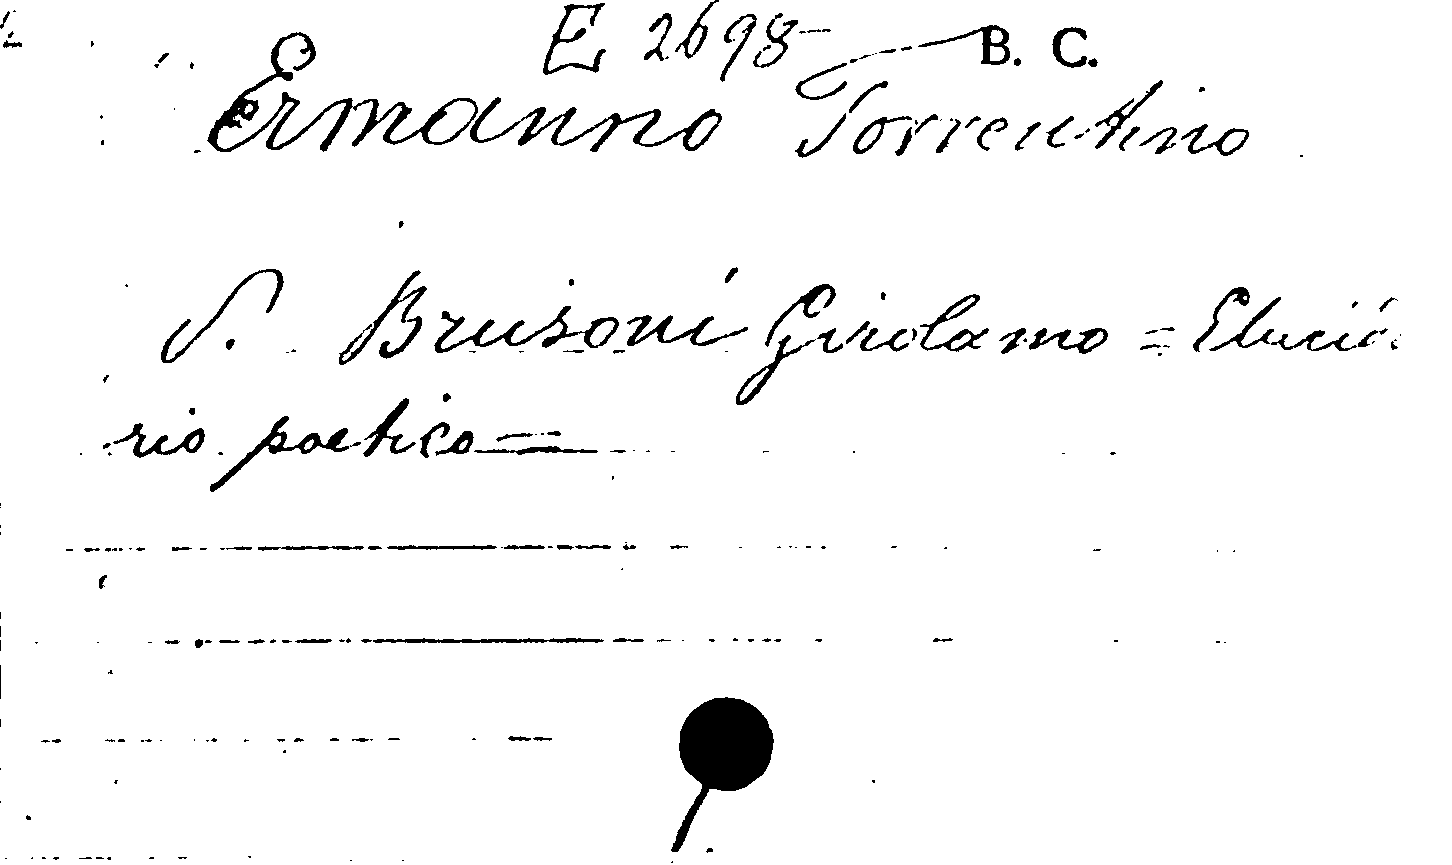 E 2698 B. C.
Ermanno Torrentino
V. Brusoni Girolamo = Elucida
rio poetico =